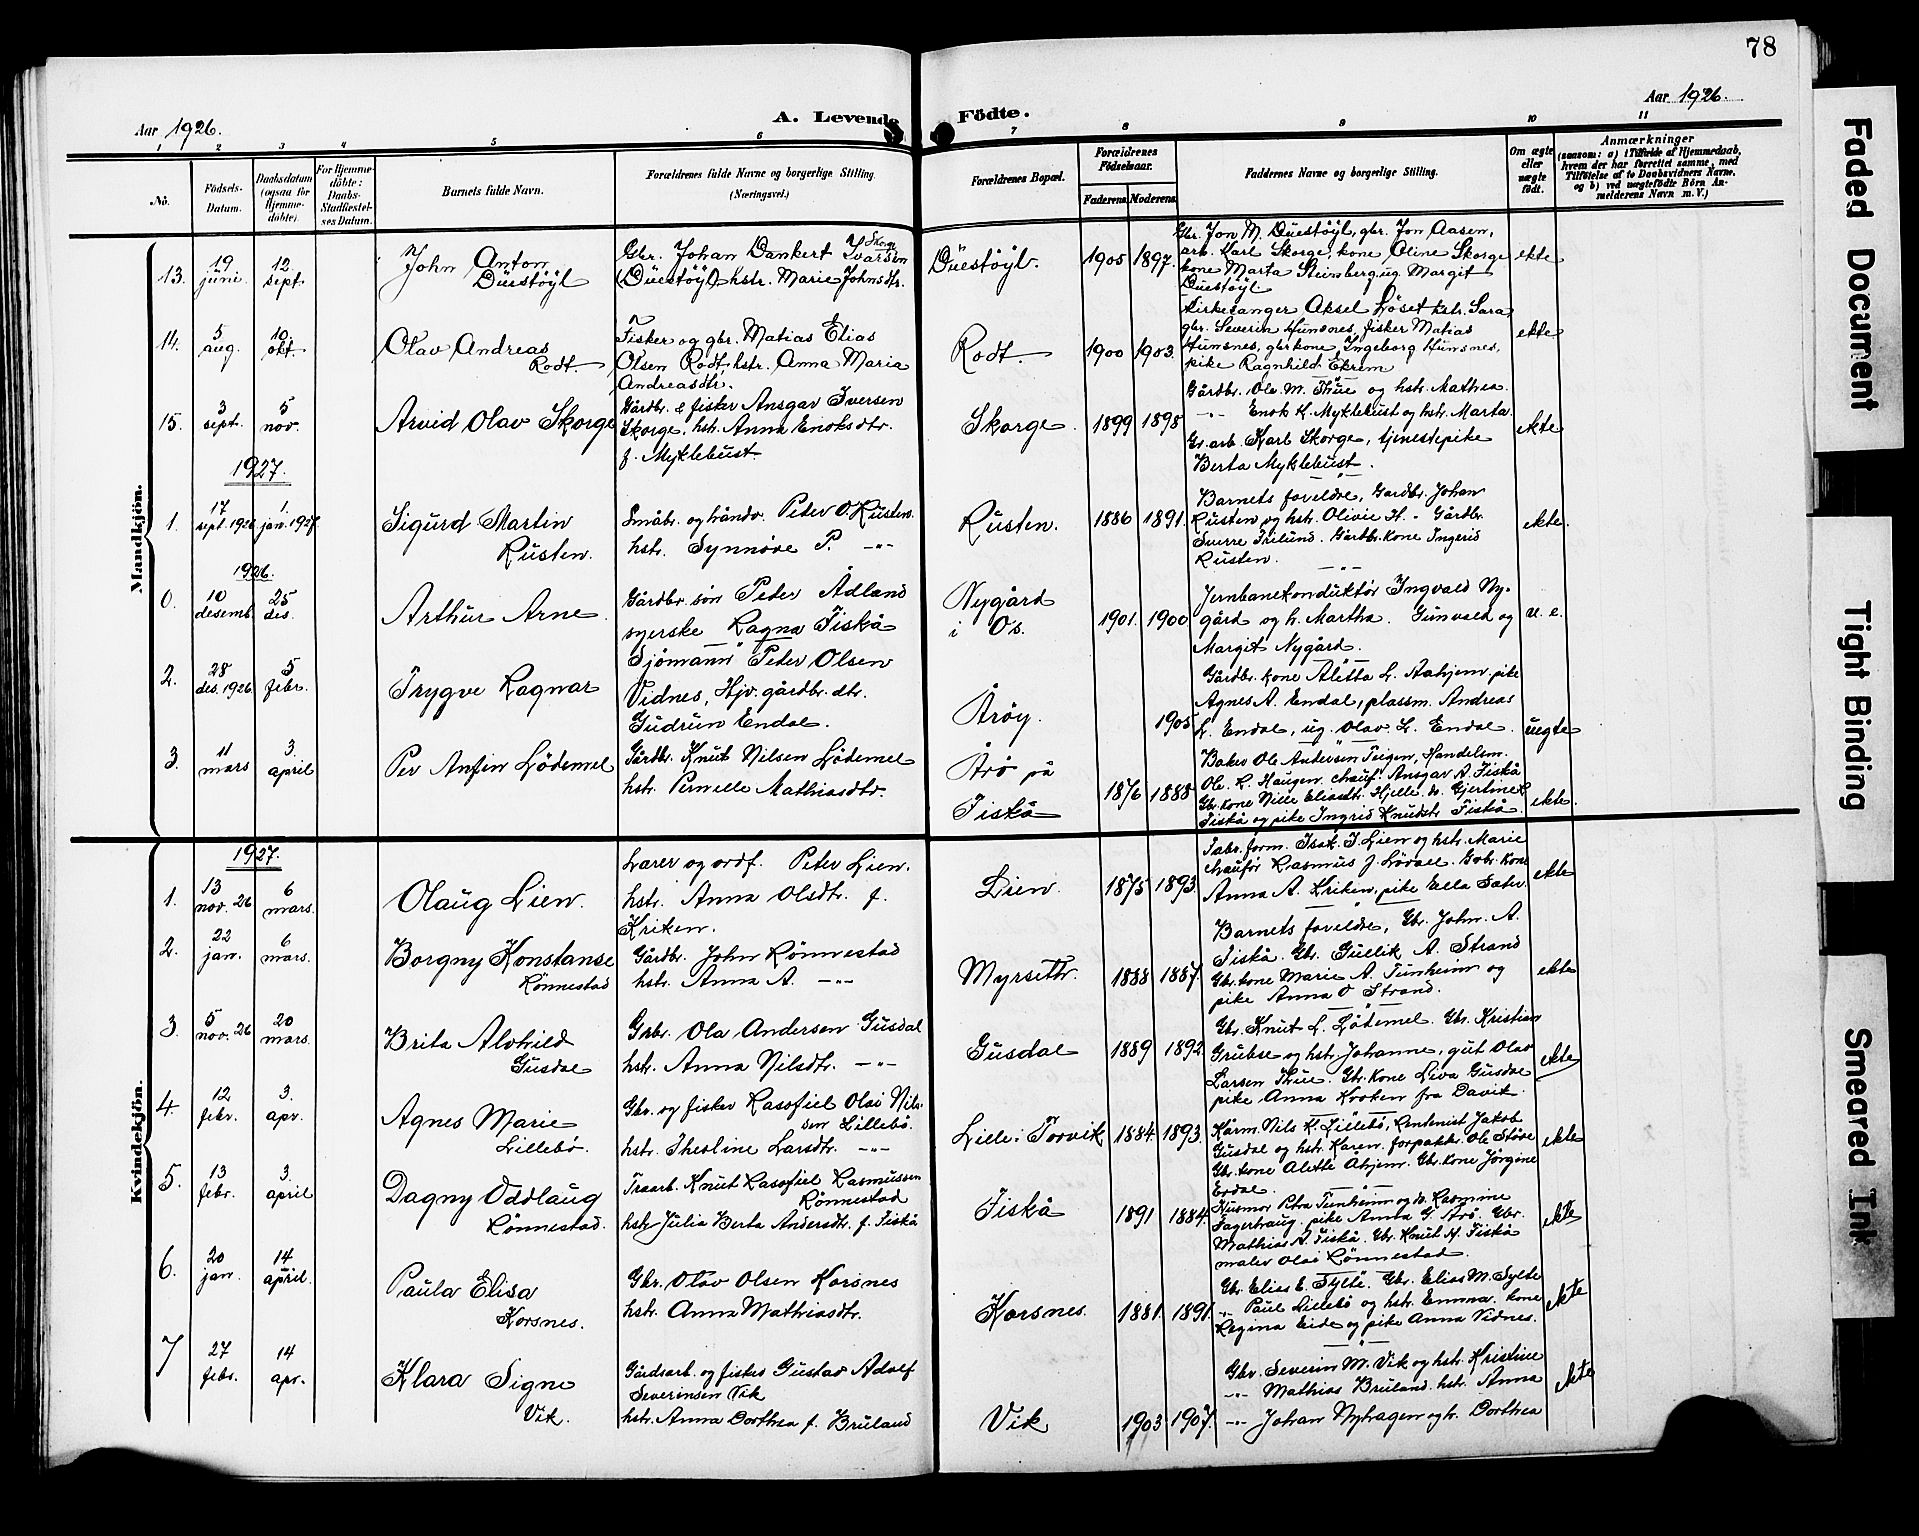 78
Aar 1926.
A. Levende Födte.
Aar 1926.
1 2 3 4 5 6 7 8 9 10 11
No.
Födsels-
Datum.
Daabsdatum
(ogsaa for
Hjemme-
döbte).
For Hjemme-
döbte:
Daabs-
Stadfæstel-
ses Datum.
Barnets fulde Navn.
Forældrenes fulde Navne og borgerlige Stilling.
(Næringsvei.)
Forældrenes Bopæl.
Forældrenes
Födselsaar.
Faderens. Moderens.
Faddernes Navne og borgerlige Stilling.
Om ægte
eller
uægte
födt.
Anmærkninger
(saasom: a) i Tilfælde af Hjemmedaab,
hvem der har forrettet samme, med
Tilföielse af to Daabsvidners Navne,
og b) ved uægtefödte Börn An-
melderens Navn m. V.)
Mandkjön.
13.
19
juni
12
sept
John Anton
Düestöyl
Skorge
Gbr. Johan Dankert Ivarsen
(Düestöyl) hstr. Marie Johnsdtr.
Düestöyl.
1905 1897.
Gbr. Jon M. Düestöyl, gbr. Jon Aasen,
arb. Karl Skorge, kone Oline Skorge
kone Marta Steinberg, ug. Margit
Düestöyl
ekte
14.
5
aug.
10
okt.
Olav Andreas
Rodt.
Fisker og gbr. Matias Elias
Olsen Rodt, hstr. Anna Maria
Andreasdtr.
Rodt.
1900 1903.
Kirkesanger Aksel Löset hstr. Sara,
gbr. Severin Hunsnes, fisker Matias
Hunsnes, gbr kone Ingeborg Hunsnes,
pike Ragnhild Ekrem
ekte
15.
3
sept.
5
nov.
Arvid Olav Skorge
Gårdbr. & fisker Ansgar Iversen
Skorge, hstr. Anna Enoksdtr.
f. Myklebust.
Skorge.
1899 1898
Gårdbr. Ole M. Thue og hstr. Mathea.
-"- Enok K. Myklebust og hstr. Marta.
Gr. arb. Karl Skorge, tjenestepike
Berta Myklebust.
ekte
1927.
1.
17
sept. 1926
1.
jan. 1927.
Sigurd Martin
Rusten.
Småbr. og håndv. Peter O. Rusten.
hstr. Synnöve P. -"-
Rusten.
1886 1891.
Barnets foreldre, Gardbr. Johan
Rusten og hstr. Olivie H. - Gårdbr.
Sverre Frilund. Gårdbr. kone Ingerid
Rusten.
ekte.
1926.
0.
10
desemb.
25
des.
Arthur Arne.
Gårdbr. sön Peder Ådland
syerske Ragna Fiskå
Nygård
i Os.
1901. 1900
Jernbanekonduktör Ingvald Ny-
gård og h. Martha. Gunvald og
Margit Nygård.
u. e.
2.
28
des. 1926
5
febr.
Trygve Ragnar
Sjömann Peter Olsen
Vidnes, Hjv. gårdbr. dtr.
Gudrun Endal.
Åröy.
1905
Gårdbr. kone Aletta L. Aahjem pike
Agnes A. Endal, plassm. Andreas
L. Endal, ug. Olav L. Endal.
uegte
3.
11
mars
3.
april
Per Anfin Lödemel
Gårdbr. Knut Nilsen Lödemel
hstr. Pernelle Mathiasdtr.
Årö på
Fiskå
1876 1888
Baker Ole Andersen Teigen, Handelsm.
Ole L. Haugen, chauf. Ansgar A. Fiskå
Gbr. kone Nille Eliasdtr. Hjelle, do Gjertine K.
Fiskå og pike Ingrid Knudsdtr. Fiskå.
ekte.
Kvindekjön.
1927.
1.
13
nov. 26
6
mars.
Olaug Lien.
Lærer og ordf. Peter Lien.
hstr. Anna Olsdtr. f.
Kriken.
Lien.
1875 1893.
Fabr. form. Isak J. Lien og hstr. Marie
chauför Rasmus J. Lövall. Gbr. kone
Anna A. Kriken, pike Ella Sæter.
ekte
2.
22
jan.
6
mars.
Borgny Konstanse
Rönnestad
Gårdbr. John Rönnestad
hstr. Anna A. -"-
Myrsettr.
1888 1887.
Barnets foreldre, Gbr. John. A.
Fiskå. Gbr. Gullik A. Strand
Gbr. kone Marie A. Tunheim og
pike Anna O Strand.
ekte
3.
5
nov. 26
20
mars.
Brita Alvhild
Gusdal
Grbr. Ola Andersen Gusdal
hstr. Anna Nilsdtr. -"-
Gusdal
1889 1892
Gbr. Knut L. Lödemel. Gbr. Kristian
Grubse og hstr. Johanne, gut Olav
Larsen Thue. Gbr. kone Liva Gusdal
pike Anna Kroken fra Davik.
ekte
4.
12
febr.
3.
apr.
Agnes Marie
Lillebö.
Gbr. og fisker Rasofiel Olai Nils-
sen Lillebö.
hstr. Theoline Larsdtr. -"-
Lille-Torvik
1884. 1893.
Kårm. Nils K. Lillebö, Rentenist Jakob
Gusdal og hstr. Karen, forpaktr. Ole Störe
Gbr. kone Alette Åhjem. Gbr. kone Jörgine
Erdal.
ekte
5.
13
febr.
3.
april
Dagny Oddlaug
Rönnestad.
Traarb. Knut Rasofiel Rasmussen
Rönnestad
hstr Julia Berta Andersdtr. f. Fiskå
Fiskå
1891 1884.
Husmor Petra Tunheim og do. Rasmine
Fagerhaug, pike Anna G. Årö. Gbr.
Mathias A. Fiskå. Gbr. Knut A. Fiskå
maler Olai Rönnestad.
ekte
6.
20
jan.
14
april.
Paula Elisa
Korsnes.
Gbr. Olav Olsen Korsnes
hstr. Anna Mathiasdtr.
Korsnes.
1881. 1891.
Gbr. Elias E. Sylte. Gbr. Elias M. Sylte
-"- Paul Lillebö og hstr. Emma. kone
Regina Eide og pike Anna Vidnes.
ekte
7
27
febr.
14
apr.
Klara Signe
Vik.
Gårdsarb. og fisker Gustav Adolf
Severinsen Vik
hstr. Anna Dorthea f. Bruland
Vik
1903 1907.
Gbr. Severin M. Vik og hstr. Kristine
-"- Mathias Bruland. hstr. Anna
-"- Johan Nyhagen og h. Dorthea
ekte
Faded Document
Tight Binding
Smeared Ink